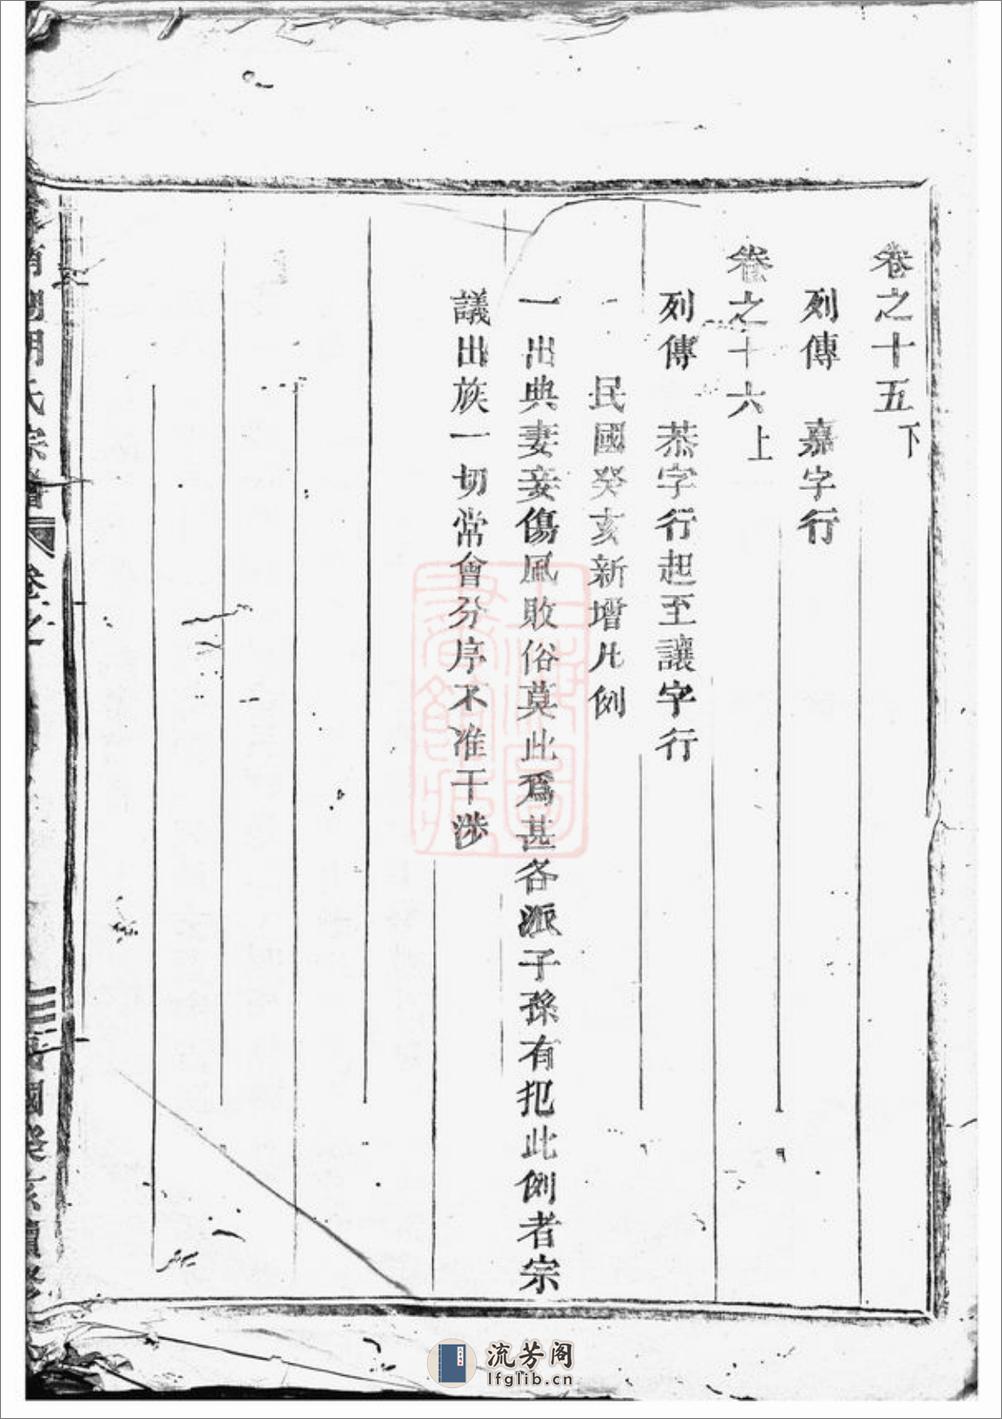 卷之十五下
列傳 嘉字行
卷之十六上
列傳 恭字行起至讓字行
一 民國癸亥新增凡例
一出典妻妾傷風敗俗莫此爲甚各派子孫有犯此例者宗
議出族一切常會分序不准干涉
氏宗譜 卷之
民國癸亥續修
上海圖書館藏
流芳阁
lfglib.cn